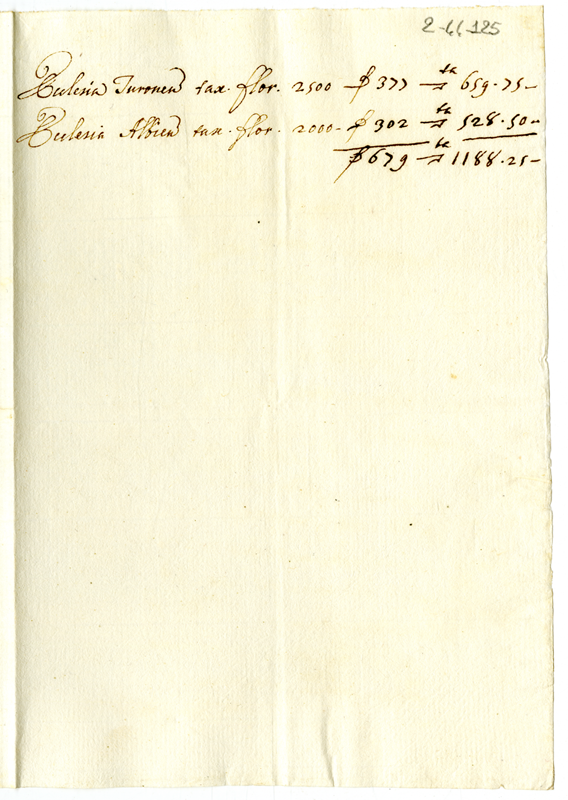 2-66-125
Ecclesia Turonen tax. flor. 2500 – ₰ 377 – sa 659.75–
Ecclesia Albien tax. flor. 2000– ₰ 302 – sa 528.50–
₰ 679 – sa 1188.25–